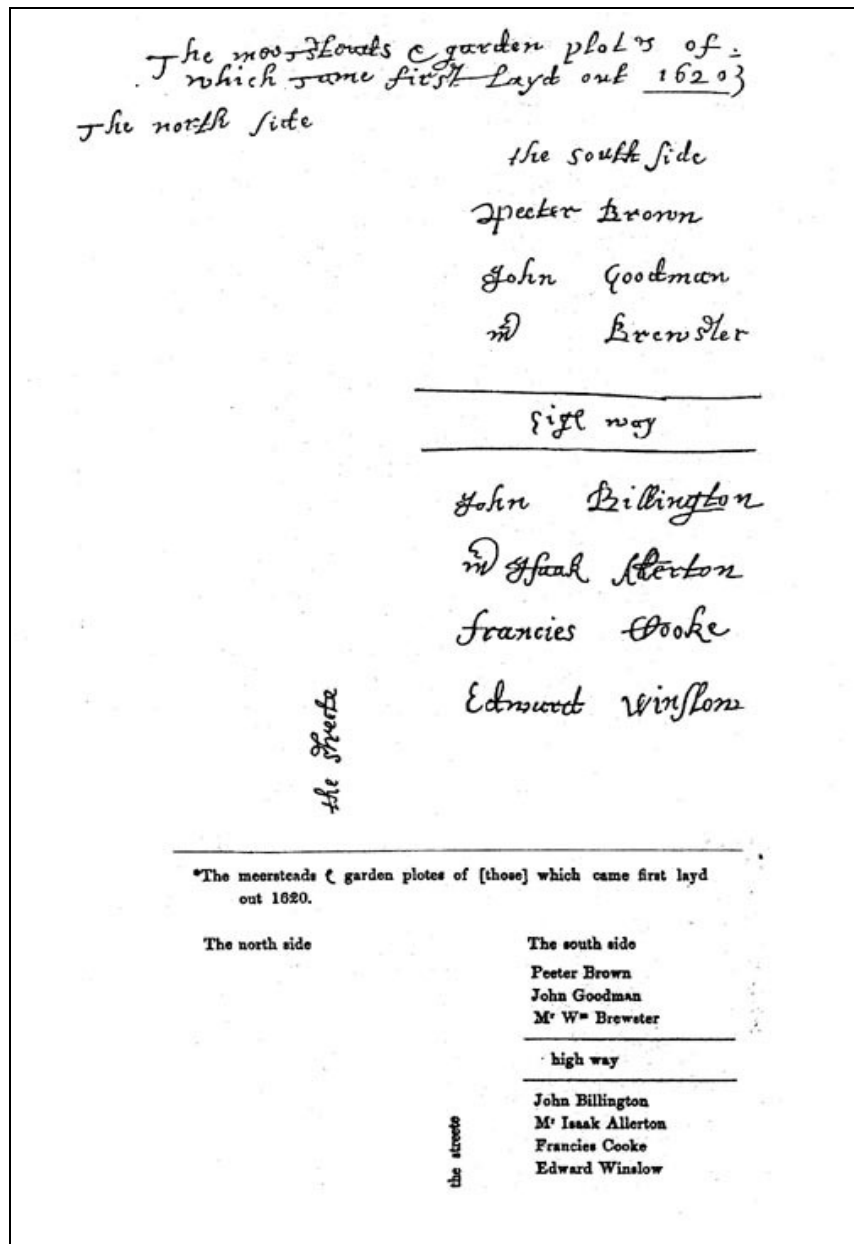 The meersteads & garden plotes of
which came first layd out 1620
The north side
the south side
Peeter Brown
John Goodman
Mr Brewster
high way
John Billington
Mr Isaak Allerton
Francies Cooke
Edward Winslow
the streete
*The meersteads & garden plotes of [those] which came first layd
out 1620.
The north side
The south side
Peeter Brown
John Goodman
Mr Wm Brewster
high way
John Billington
Mr Isaak Allerton
Francies Cooke
Edward Winslow
the streete